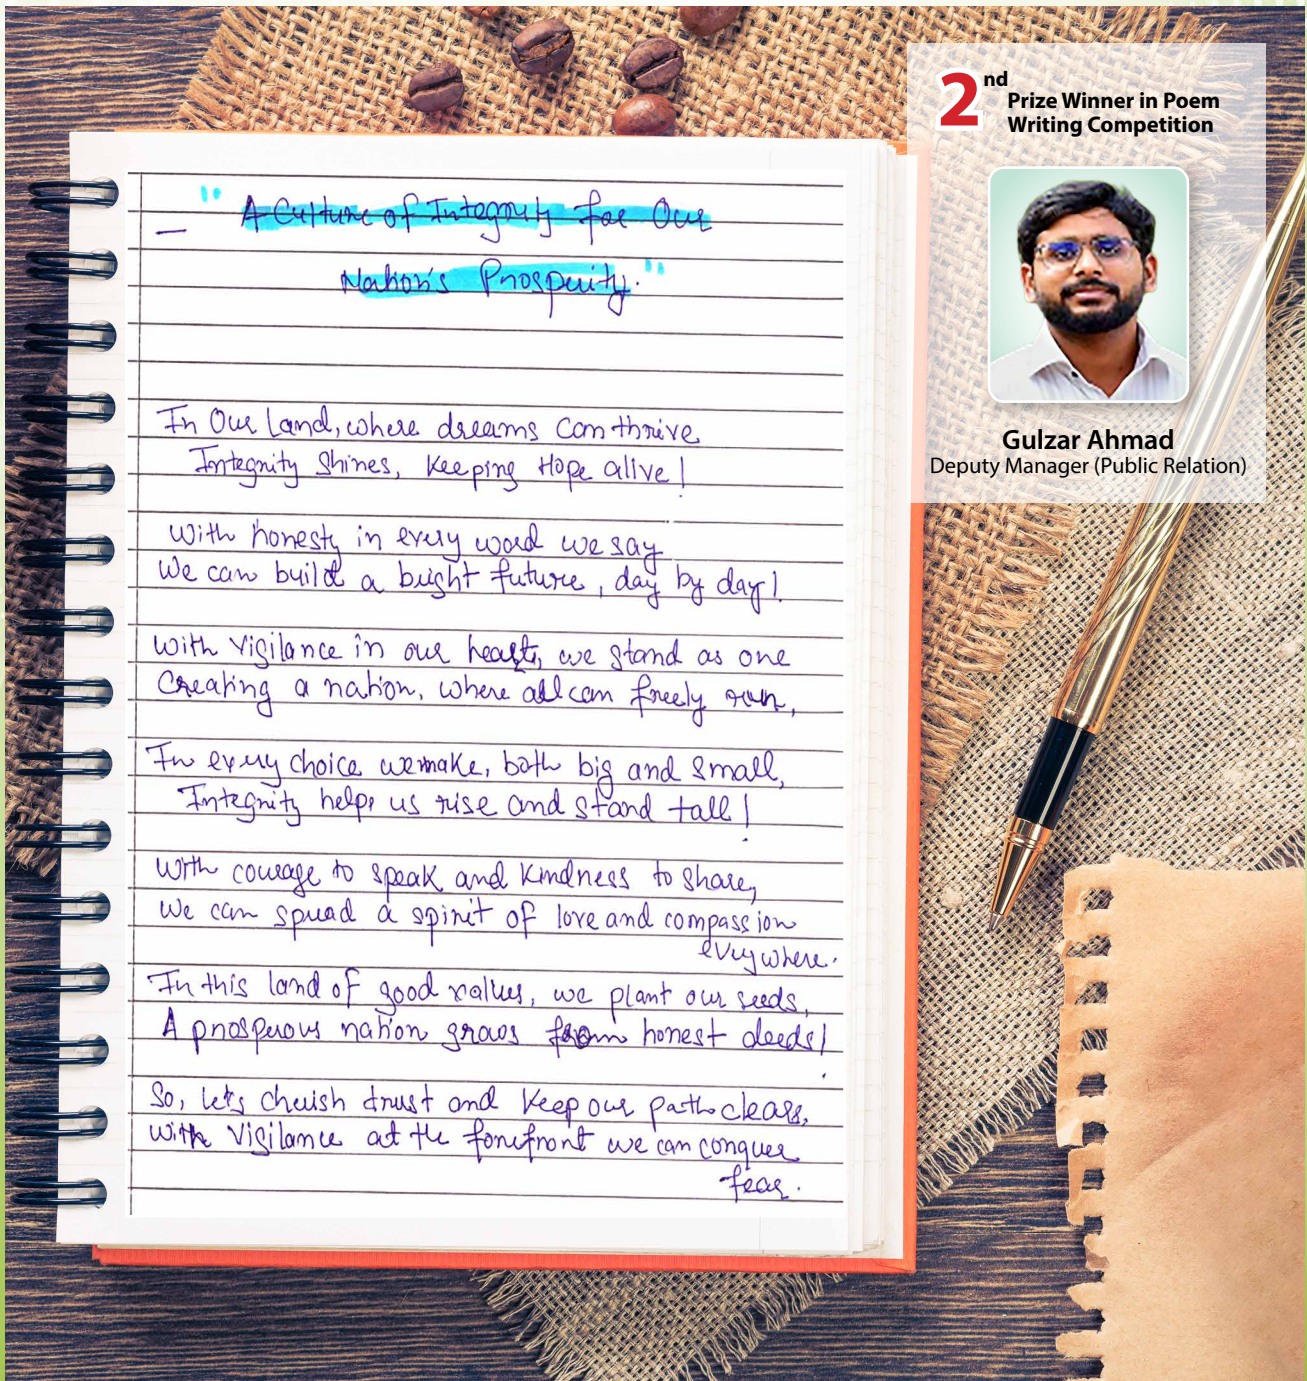 2nd
Prize Winner in Poem
Writing Competition
Gulzar Ahmad
Deputy Manager (Public Relation)
"A Culture of Integrity for Our
Nation's Prosperity."
In Our Land, where dreams can thrive
Integrity Shines, Keeping Hope alive!
With honesty in every word we say
We can build a bright future, day by day!
With Vigilance in our hearts, we stand as one
Creating a nation, where all can freely run,
In every choice we make, both big and small,
Integrity helps us rise and stand tall!
With courage to speak and kindness to share,
We can spread a spirit of love and compassion
everywhere.
In this land of good values, we plant our seeds,
A prosperous nation grows from honest deeds!
So, let's cherish trust and Keep our path clear,
With Vigilance at the forefront we can conquer
fear.